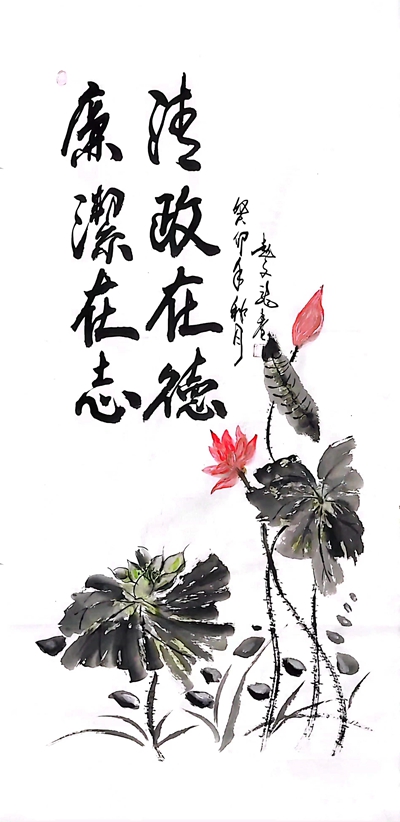 清政在德
廉潔在志
癸卯年秋月